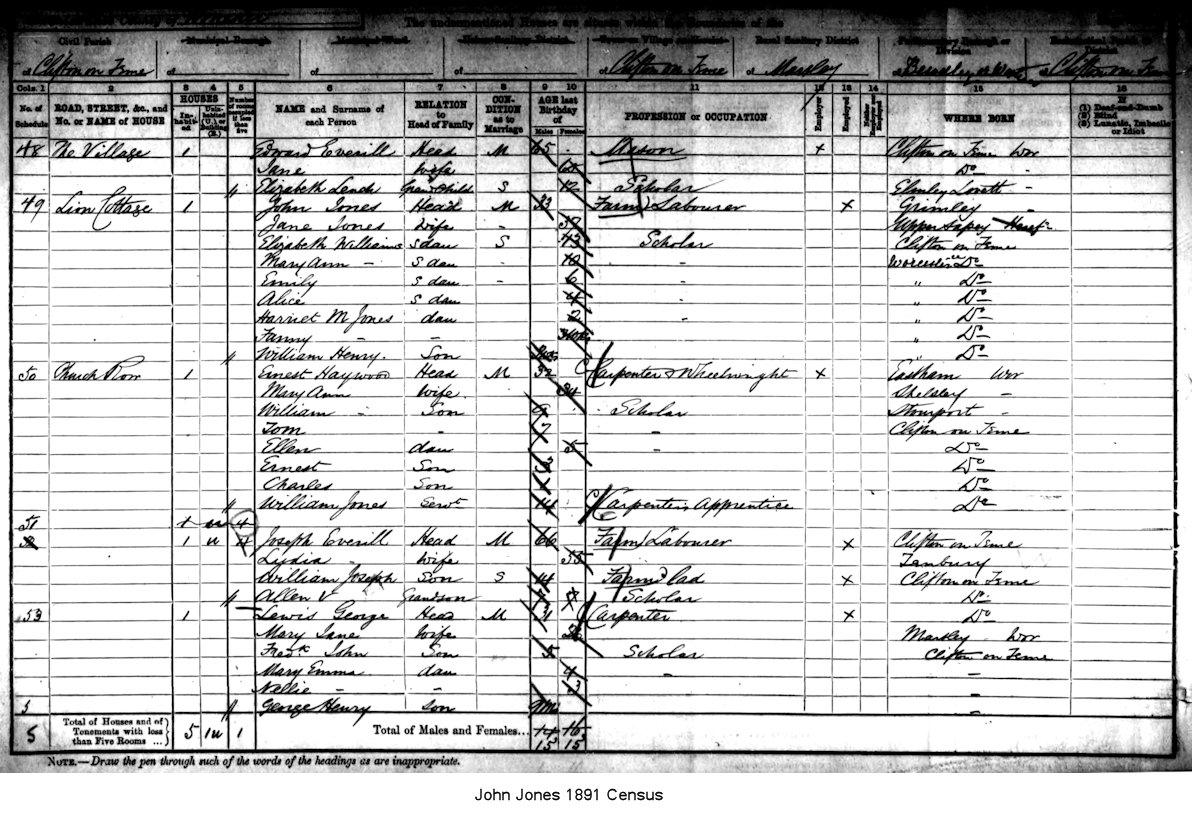 The undermentioned Houses are situate within the Boundaries of the
Civil Parish Municipal Borough Municipal Ward Urban Sanitary District Town or Village or Hamlet Rural Sanitary District Parliamentary Borough or Division Ecclesiastical Parish or District
of Clifton on Teme of of of of Clifton on Teme of Martley of of Clifton on Teme
Cols. 1 2 3 4 5 6 7 8 9 10 11 12 13 14 15 16
No. of Schedule ROAD, STREET, &c., and No. or NAME of HOUSE HOUSES Inhabited Uninhabited (U.) or Building (B.) Number of rooms occupied if less than five NAME and Surname of each Person RELATION to Head of Family CONDITION as to Marriage AGE last Birthday of Males Females PROFESSION or OCCUPATION Employer Employed Neither Employer nor Employed WHERE BORN If (1) Deaf-and-Dumb (2) Blind (3) Lunatic, Imbecile or Idiot
48 The Village 1 Edward Everill Head M 65 Mason x Clifton on Teme Wor
Jane Wife 60 Do
Elizabeth Lench Grand Child S 12 Scholar Elmley Lovett
49 Lion Cottage 1 John Jones Head M 33 Farm Labourer x Grimley
Jane Jones Wife - 37 Upper Sapey Heref
Elizabeth Williams S dau S 13 Scholar Clifton on Teme
Mary Ann - S dau - 10 - Worcester Do
Emily S dau - 6 - " Do
Alice S dau 4 " Do
Harriet M Jones dau 2 - " Do
Fanny - - " Do
William Henry. Son " Do
50 Church Row 1 Ernest Haywood Head M 32 Carpenter & Wheelwright x Eastham Wor
Mary Ann Wife 34 Shelsley -
William - Son 9 Scholar Stourport -
Tom - 7 - Clifton on Teme
Ellen dau 5 - Do
Ernest Son 3 Do
Charles Son 1 Do
William Jones Servt 14 Carpenters Apprentice Do
51 1 u 4
52 1 u 4 Joseph Everill Head M 66 Farm Labourer x Clifton on Teme
Lydia - Wife 55 Tenbury
William Joseph Son S 14 Farm lad x Clifton on Teme
Allen V Grandson 7 Scholar Do
53 1 Lewis George Head M 31 Carpenter x Do
Mary Jane Wife Martley Wor
Fredk John Son 5 Scholar Clifton on Teme
Mary Emma dau 4 - -
Nellie - - 3 -
George Henry Son 9m -
5 Total of Houses and of Tenements with less than Five Rooms ... 5 1u 1 Total of Males and Females... 14 16
15 15
NOTE.—Draw the pen through such of the words of the headings as are inappropriate.
John Jones 1891 Census